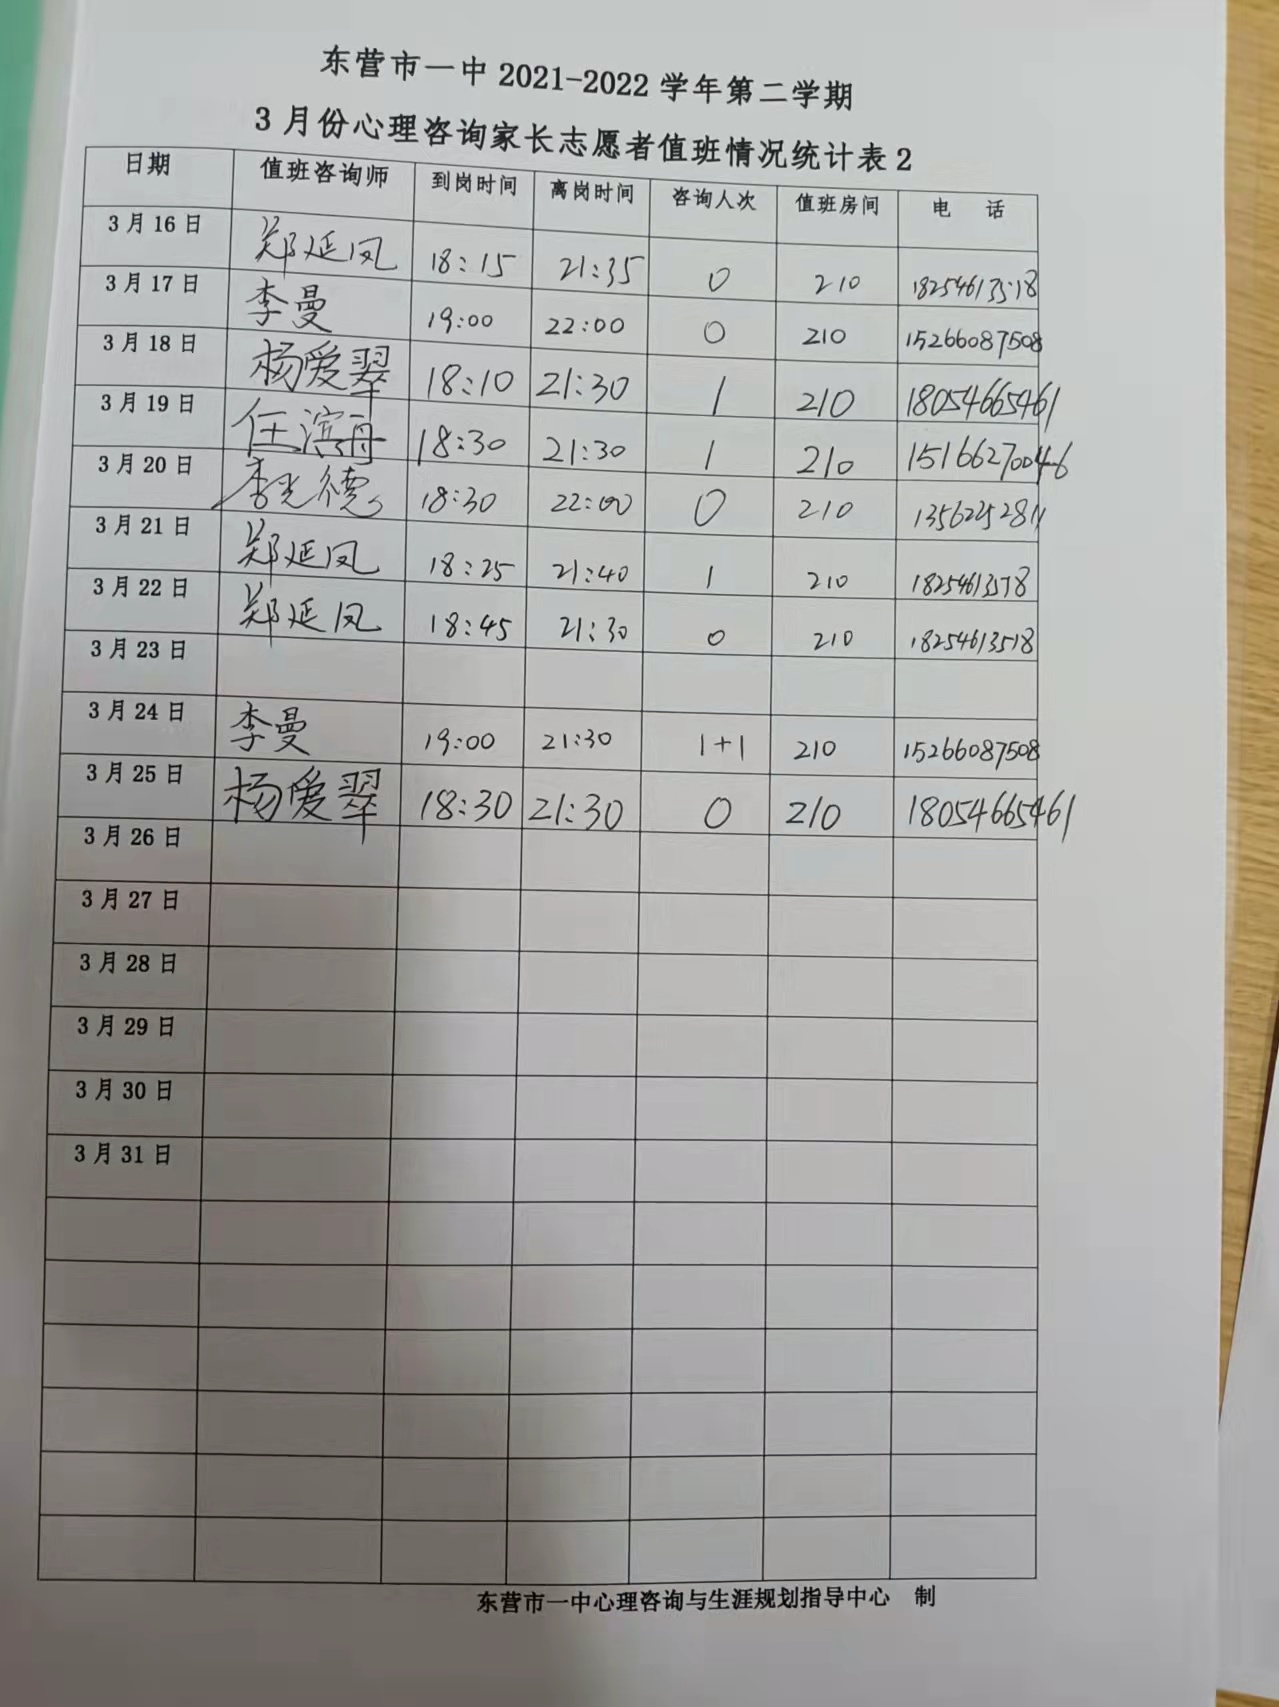 东营市一中 2021-2022 学年第二学期
3 月份心理咨询家长志愿者值班情况统计表 2
日期 值班咨询师 到岗时间 离岗时间 咨询人次 值班房间 电 话
3 月 16 日 郑延凤 18:15 21:35 0 210 18254613518
3 月 17 日 李曼 19:00 22:00 0 210 15266087508
3 月 18 日 杨爱翠 18:10 21:30 1 210 18054665461
3 月 19 日 任滨舟 18:30 21:30 1 210 15166270046
3 月 20 日 李光德 18:30 22:00 0 210 13562252811
3 月 21 日 郑延凤 18:25 21:40 1 210 18254613518
3 月 22 日 郑延凤 18:45 21:30 0 210 18254613518
3 月 23 日
3 月 24 日 李曼 19:00 21:30 1+1 210 15266087508
3 月 25 日 杨爱翠 18:30 21:30 0 210 18054665461
3 月 26 日
3 月 27 日
3 月 28 日
3 月 29 日
3 月 30 日
3 月 31 日
东营市一中心理咨询与生涯规划指导中心 制